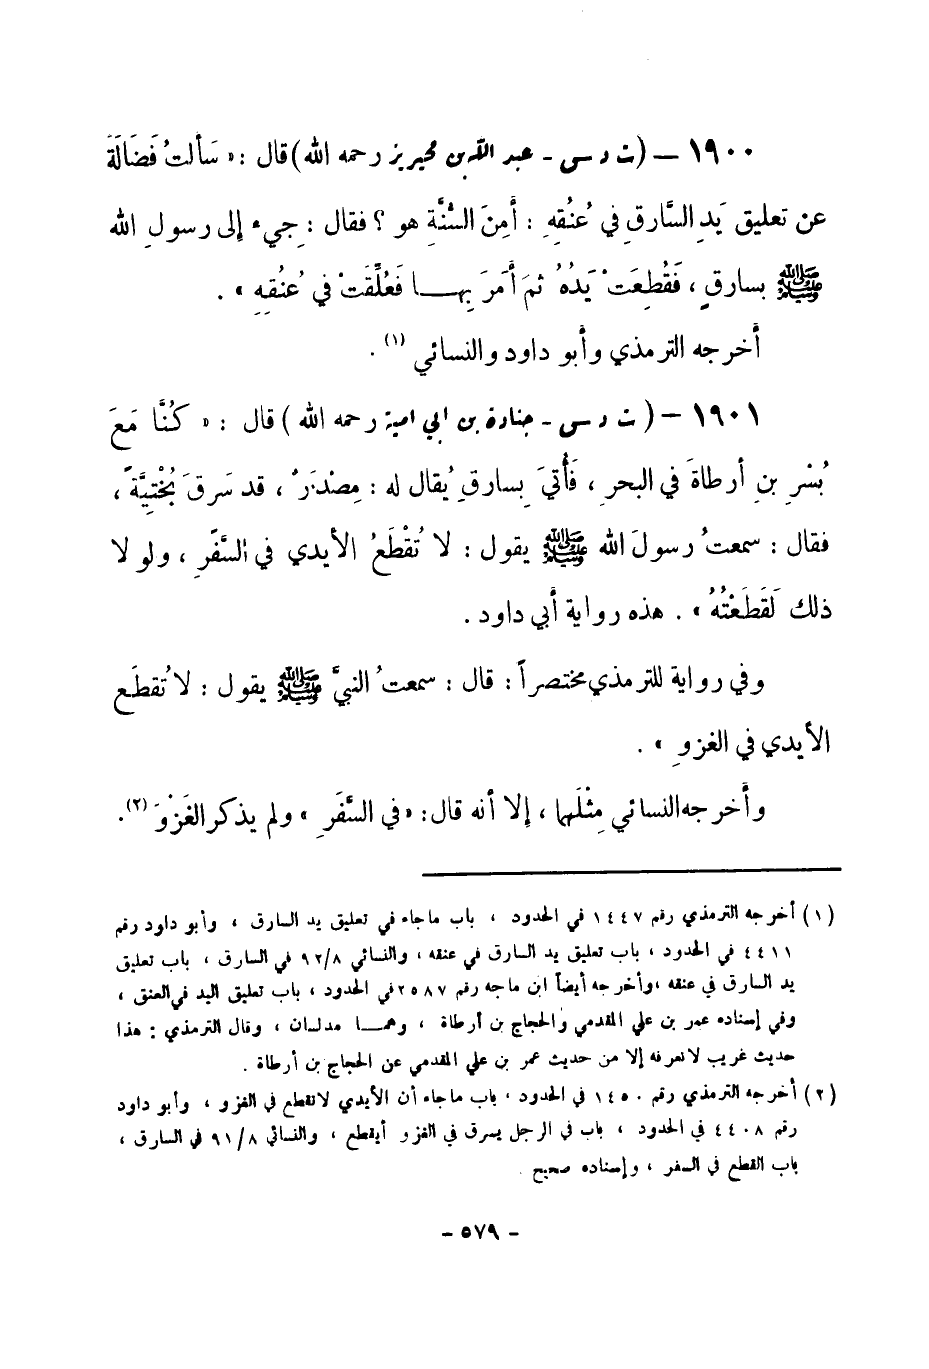 ١٩٠٠ – (ت د س - عبد الله بن محيريز رحمه الله) قال : « سَألتُ فَضَالَةَ
عن تعليق يَدِ السَّارِقِ في عُنُقِهِ : أَمِنَ السُّنَّةِ هو ؟ فقال : جِيءَ إلى رسولِ الله
ﷺ بسارقٍ ، فَقُطِعَتْ يَدُهُ ثمَ أَمَرَ بِهـا فَعُلِّقَتْ في عُنُقِهِ » .
أخرجه الترمذي وأبو داود والنسائي (١) .
١٩٠١ – ( ت د س - جنادة بن ابي امية رحمه الله ) قال : « كُنَّا مَعَ
بُسْرِ بنِ أرطاةَ في البحرِ ، فَأُتيَ بِسارقٍ يُقال له : مِصْدَرٌ ، قد سَرقَ بُخْتِيَّةً ،
فقال : سمعتُ رسولَ الله ﷺ يقول : لا تُقْطَعُ الأيدي في السَّفَرِ ، ولو لا
ذلك لَقَطَعْتُهُ » . هذه رواية أبي داود .
وفي رواية للترمذي مختصراً : قال : سمعتُ النبيَّ ﷺ يقول : لا تُقطَع
الأيدي في الغزوِ » .
وأخرجه النسائي مِثْلَها ، إلا أنه قال : « في السَّفَرِ » ولم يذكر الغَزْوَ (٢) .
(١) أخرجه الترمذي رقم ١٤٤٧ في الحدود ، باب ما جاء في تعليق يد السارق ، وأبو داود رقم
٤٤١١ في الحدود ، باب تعليق يد السارق في عنقه ، والنسائي ٩٢/٨ في السارق ، باب تعليق
يد السارق في عنقه ، وأخرجه أيضاً ابن ماجه رقم ٢٥٨٧ في الحدود ، باب تعليق اليد في العنق ،
وفي إسناده عمر بن علي المقدمي والحجاج بن أرطاة ، وهمـا مدلسان ، وقال الترمذي : هذا
حديث غريب لا نعرفه إلا من حديث عمر بن علي المقدمي عن الحجاج بن أرطاة .
(٢) أخرجه الترمذي رقم ١٤٥٠ في الحدود ، باب ما جاء أن الأيدي لا تقطع في الغزو ، وأبو داود
رقم ٤٤٠٨ في الحدود ، باب في الرجل يسرق في الغزو أيقطع ، والنسائي ٩١/٨ في السارق ،
باب القطع في السفر ، وإسناده صحيح .
- ٥٧٩ -